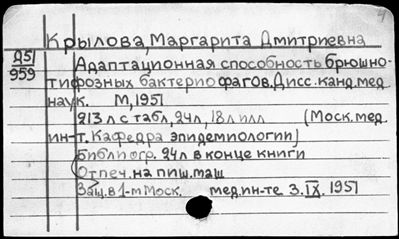 Крылова, Маргарита Дмитриевна
Д5/959
Адаптационная способность брюшно-
тифозных бактериофагов. Дисс. канд. мед
наук. М, 1951
213 л с табл, 24л, 18л илл (Моск. мед.
ин-т. Кафедра эпидемиологии)
Библиогр. 24л в конце книги
Отпеч. на пиш. маш
Защ. в 1-м Моск. мед. ин-те 3.IX. 1951